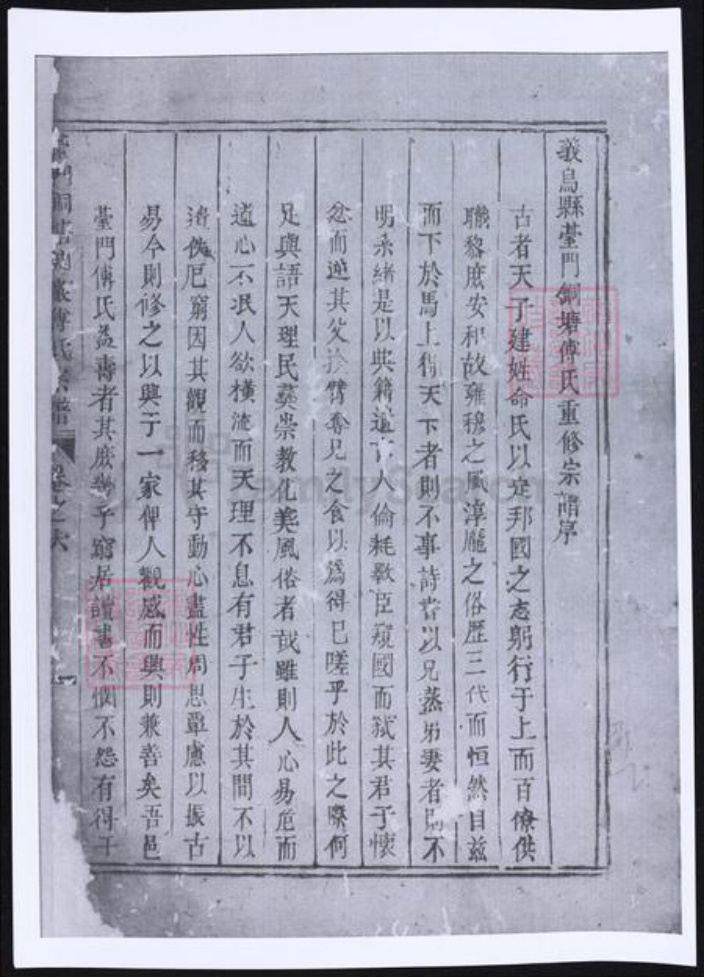 義烏縣臺門銅塘傅氏重修宗譜序
古者天子建姓命氏以定邦國之志躬行于上而百僚供
職黎庶安和故雍穆之風淳龐之俗歷三代而恒然自茲
而下於馬上得天下者則不事詩書以兄蒸弟妻者則不
明承緒是以典籍遺亡人倫耗斁臣窺國而弒其君子懷
忿而逆其父紾臂奪兄之食以爲得已嗟乎於此之際何
足與語天理民彝崇教化美風俗者哉雖則人心易危而
道心不泯人欲橫流而天理不息有君子生於其間不以
厄窮因其觀而移其守動心盡性周思單慮以振古
易今則修之以興于一家俾人觀感而興則兼善矣吾邑
臺門傅氏益壽者其庶幾乎窮居讀書不憫不怨有得于
傅氏宗譜
卷之